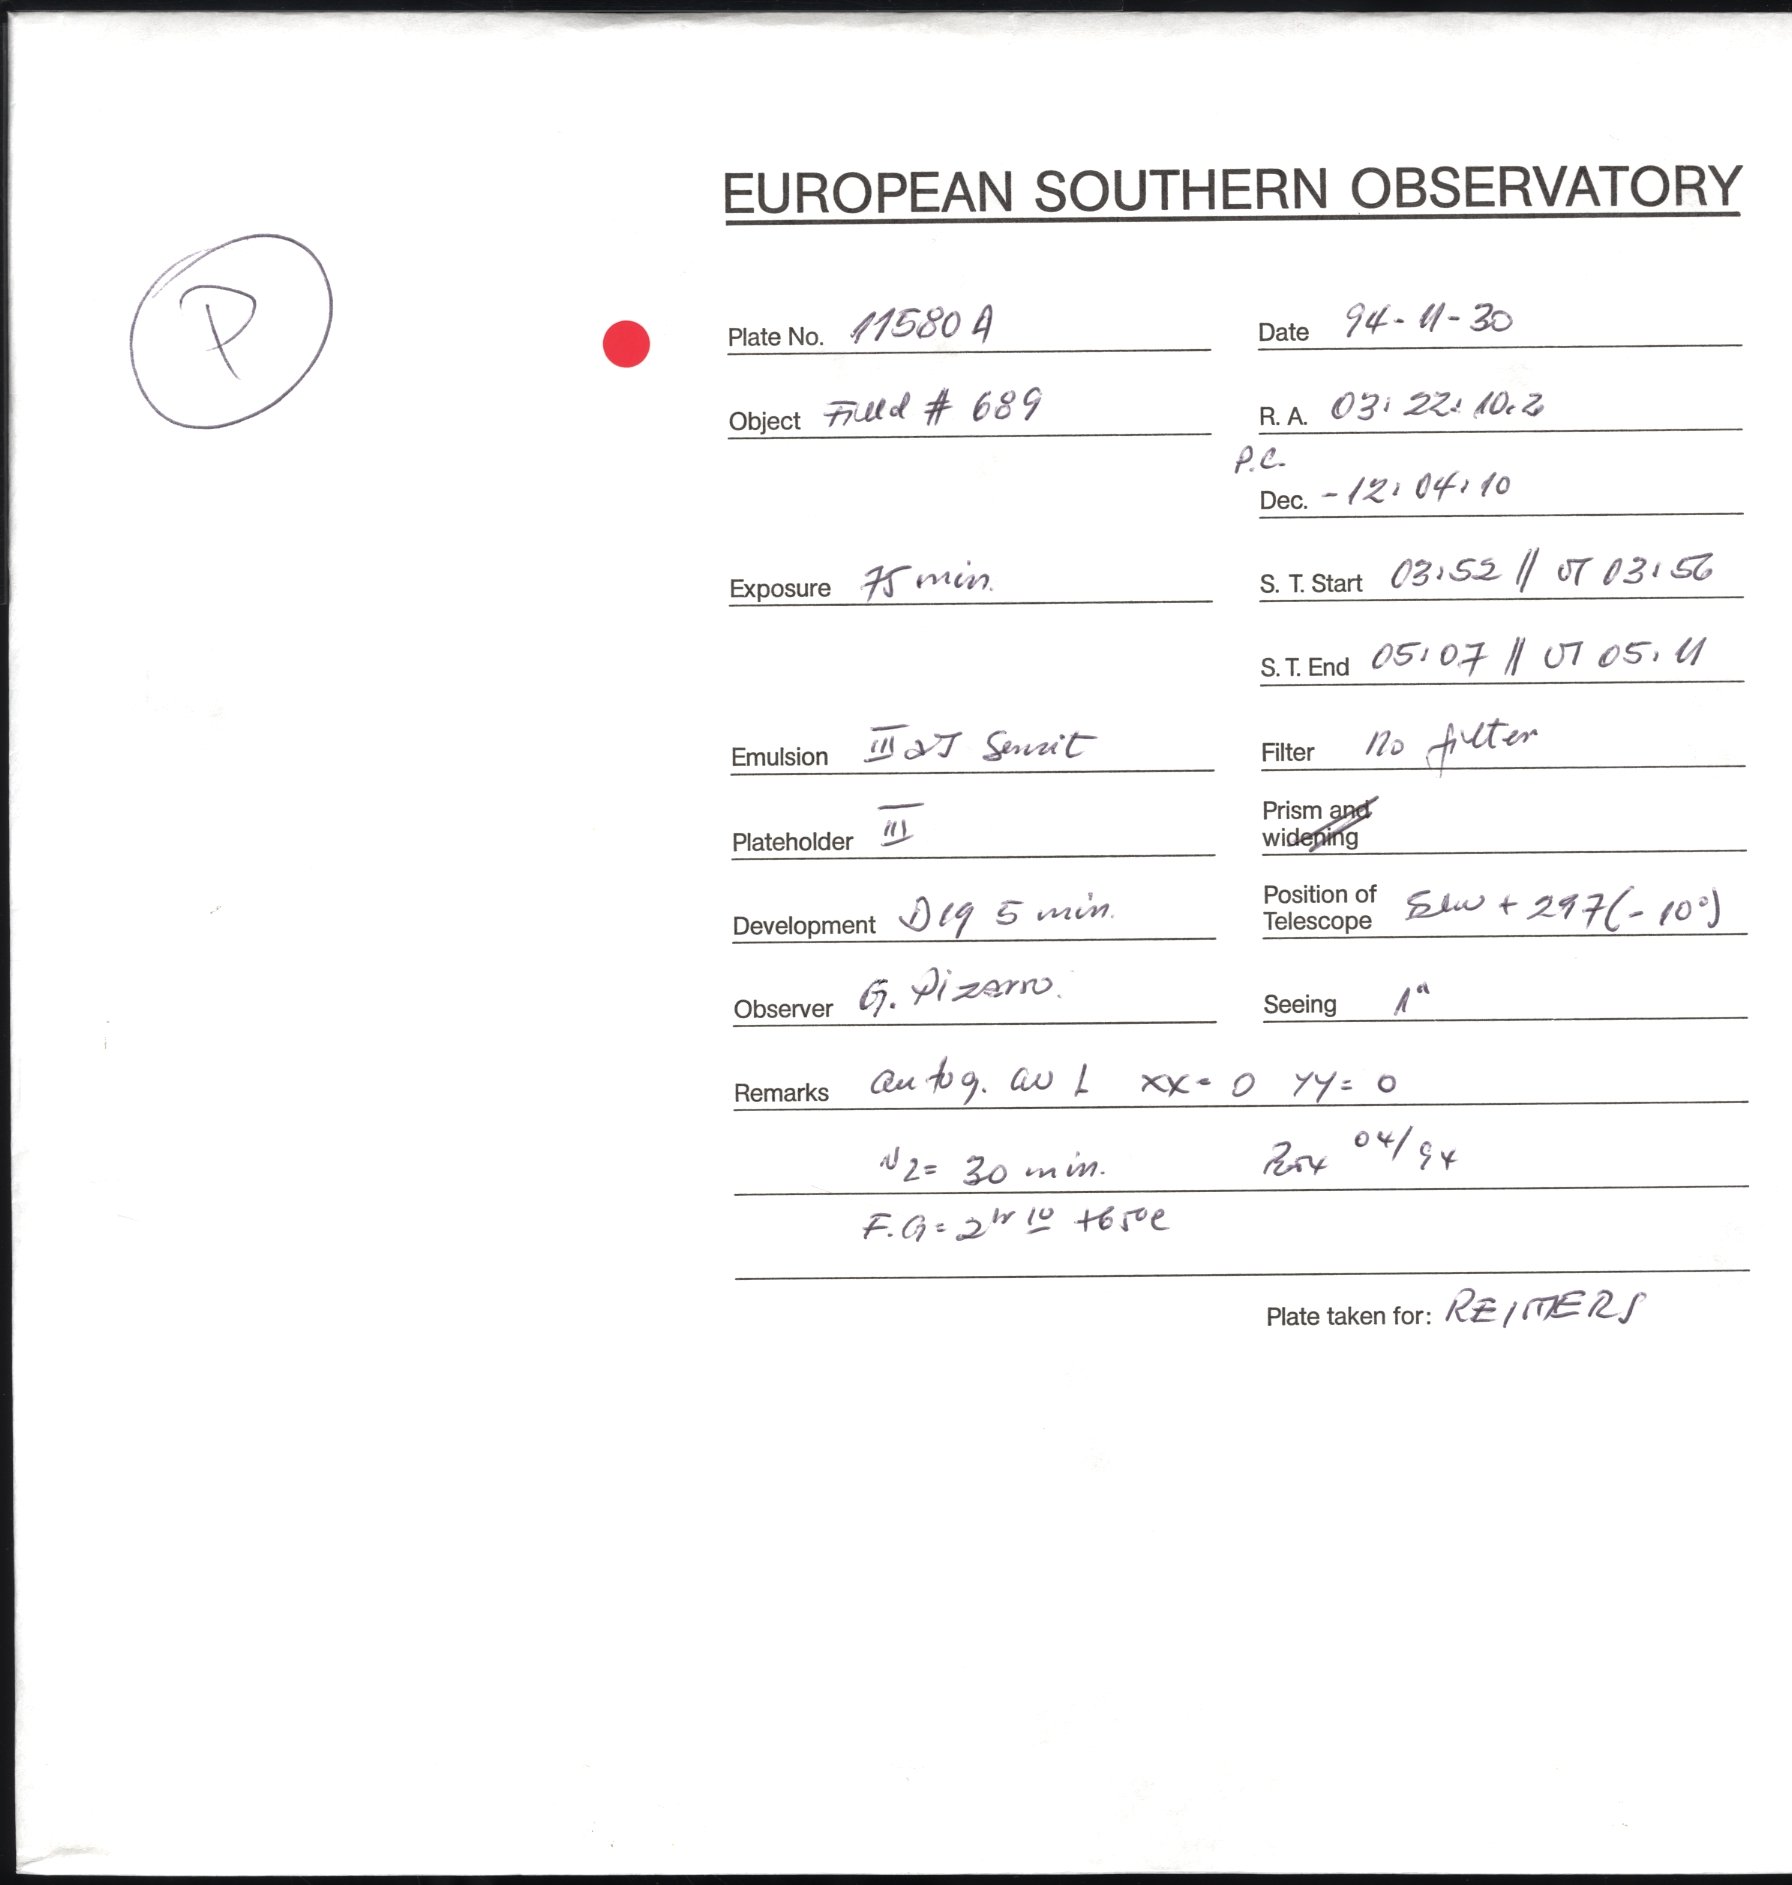 EUROPEAN SOUTHERN OBSERVATORY
P
Plate No. 11580 A
Date 94-11-30
Object Field # 689
R. A. 03: 22: 10.2
P.C.
Dec. -12: 04: 10
Exposure 75 min.
S. T. Start 03:52 // UT 03:56
S. T. End 05:07 // UT 05:11
Emulsion III aJ Sensit
Filter no filter
Plateholder III
Prism and widening
Development D19 5 min.
Position of Telescope + 297 (-10°)
Observer G. Pizarro.
Seeing 1"
Remarks autog. XX= 0 YY= 0
N2= 30 min. 04/94
F.G= 2hr 10 +65°C
Plate taken for: REIMERS